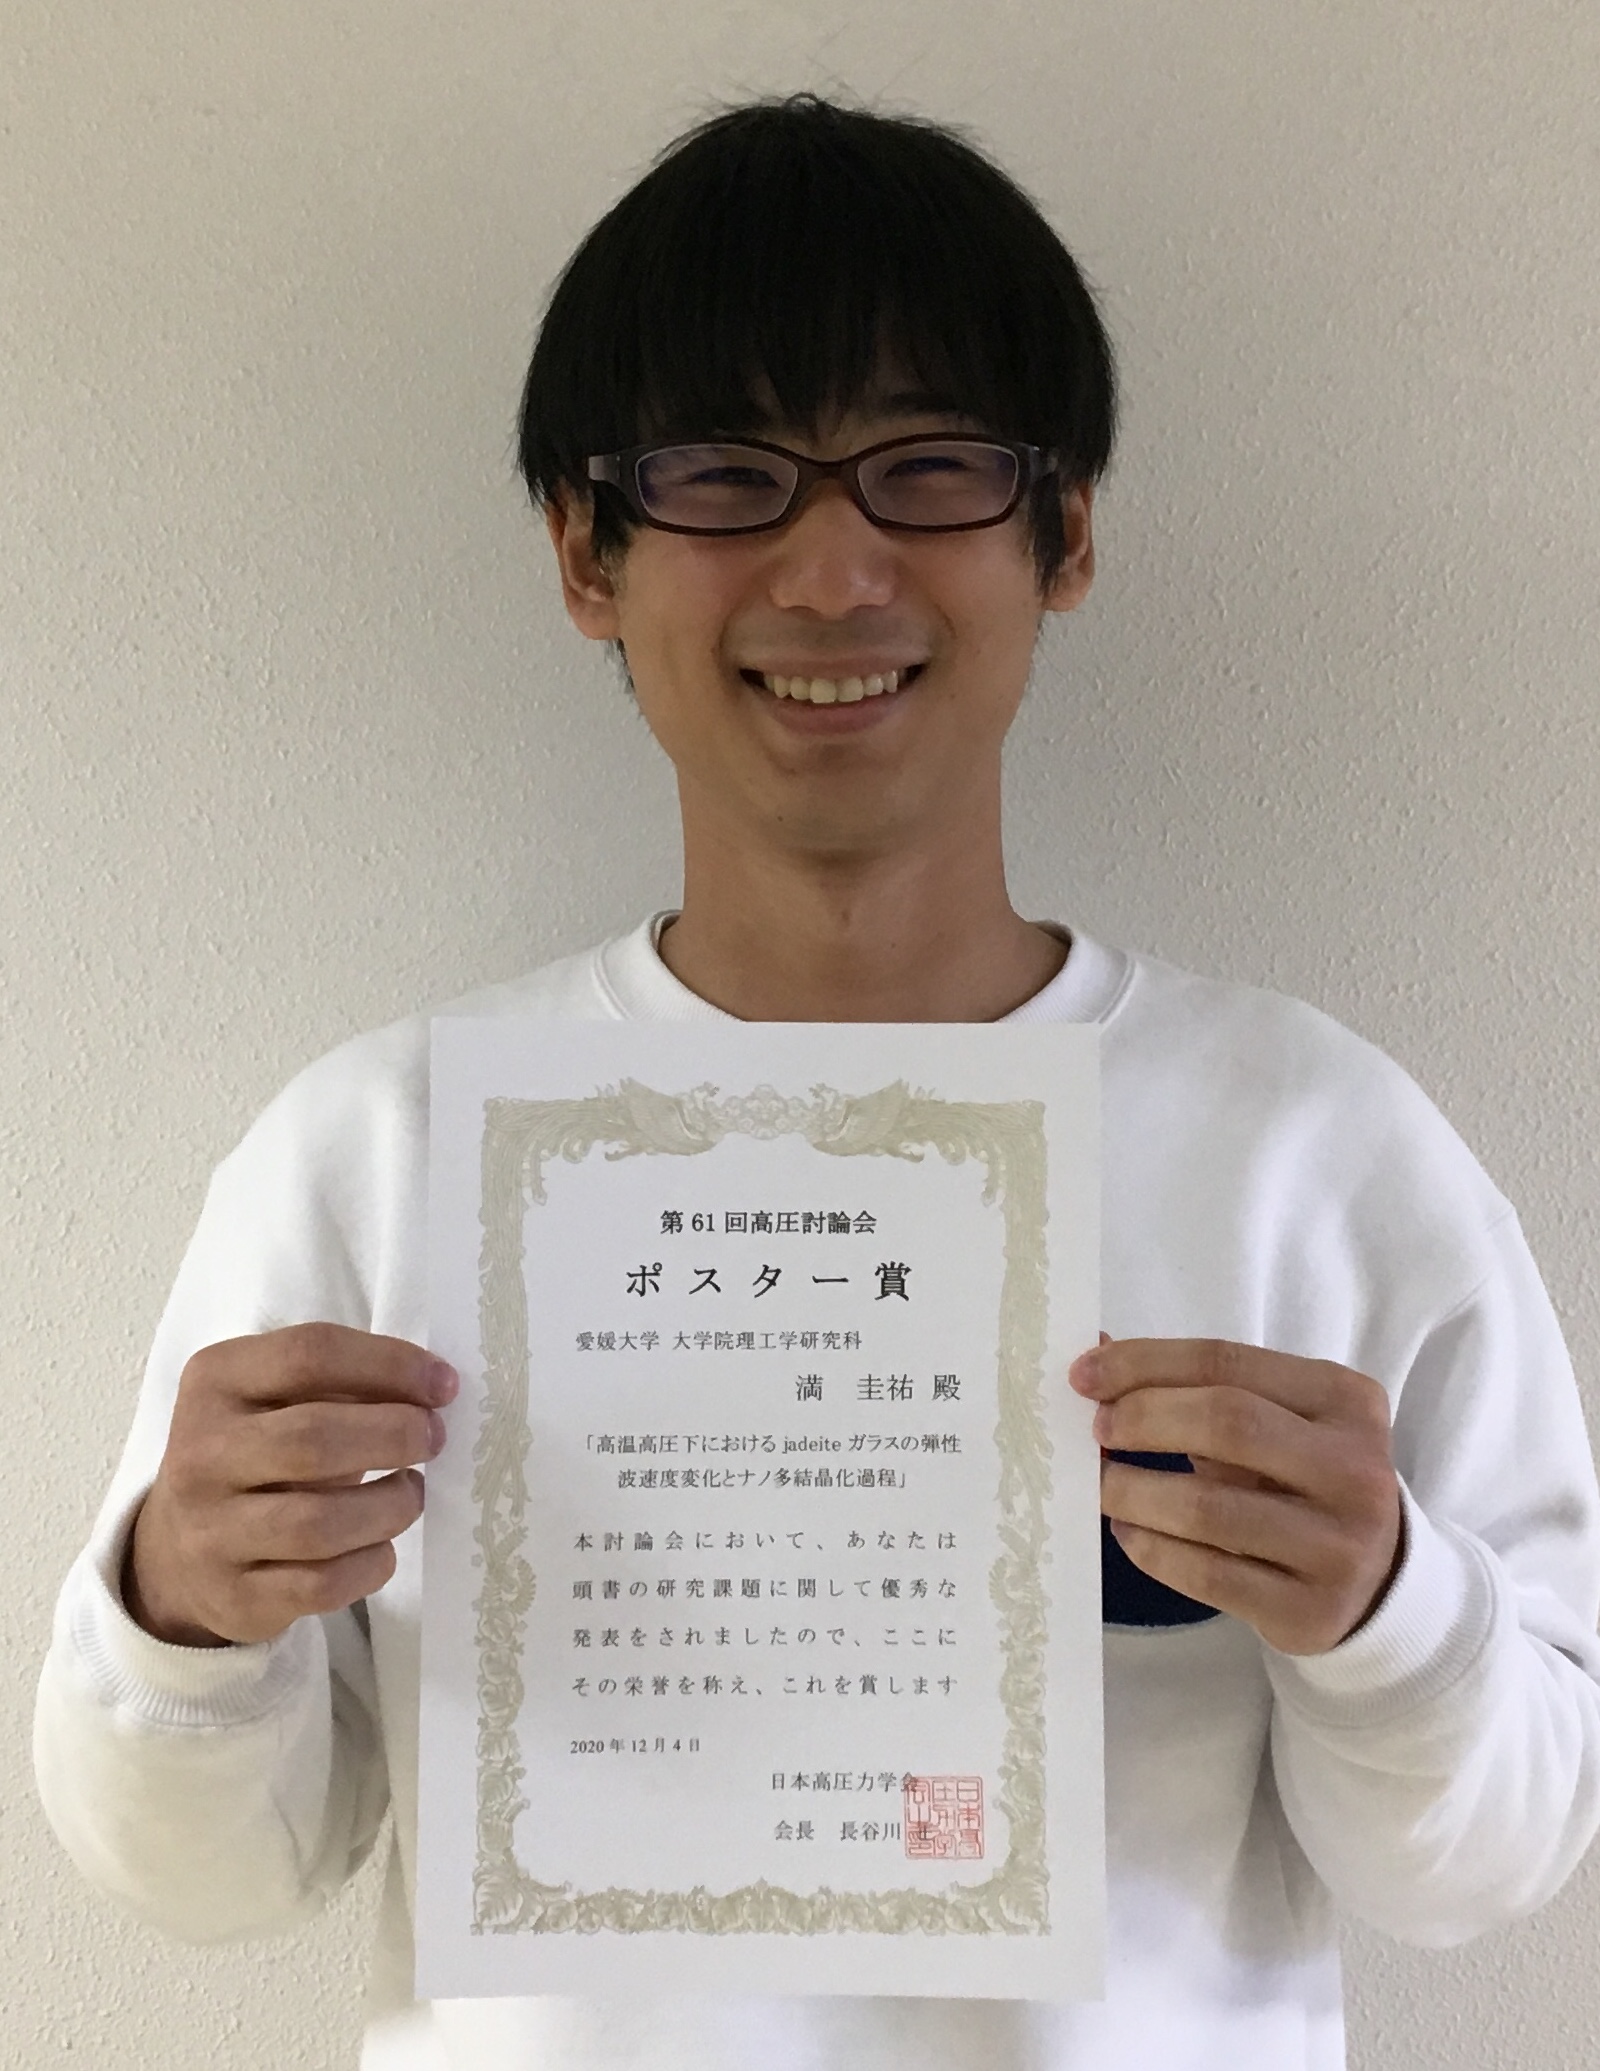 第 61 回高圧討論会
ポスター賞
愛媛大学 大学院理工学研究科
満 圭祐 殿
「高温高圧下における jadeite ガラスの弾性
波速度変化とナノ多結晶化過程」
本討論会において、あなたは
頭書の研究課題に関して優秀な
発表をされましたので、ここに
その栄誉を称え、これを賞します
2020 年 12 月 4 日
日本高圧力学会
会長 長谷川 正